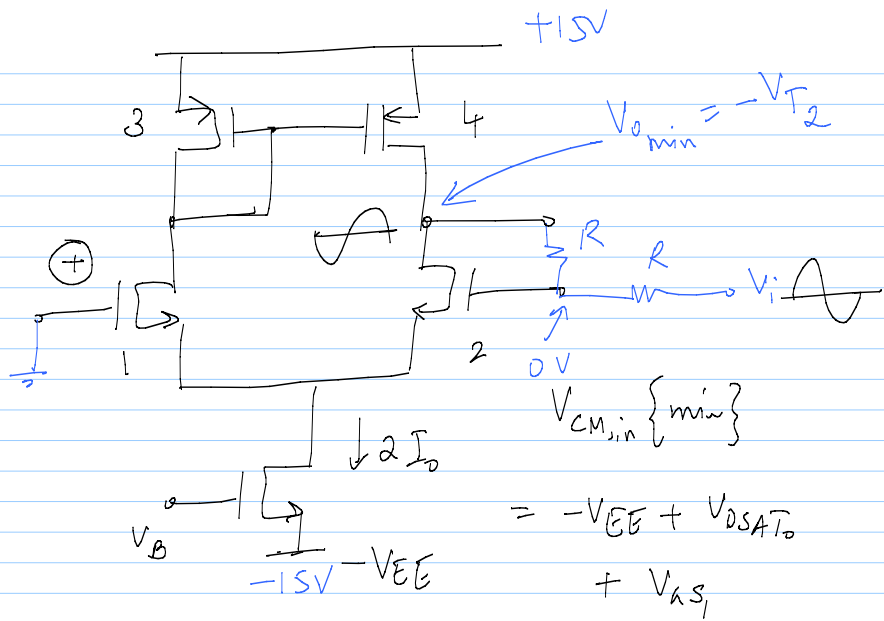 +15V
3
4
V_o min = -V_T2
+
R
R
V_i
1
2
0V
V_CM,in {min}
2I_o
= -V_EE + V_DSAT_o
V_B
-15V -V_EE
+ V_GS_1